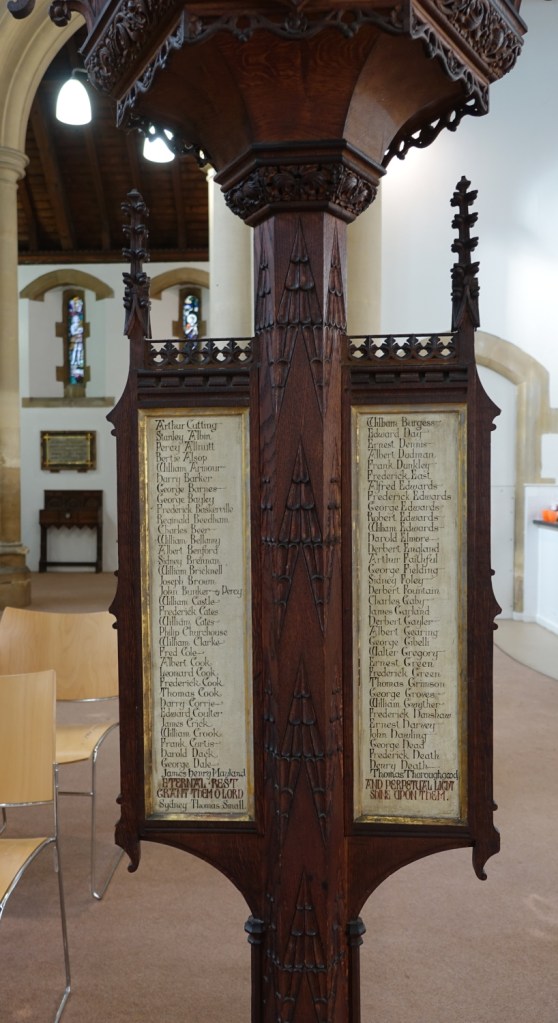 Arthur Cutting
Stanley Allen
Percy Allnutt
Bertie Alsop
William Armour
Harry Barker
George Barnes
George Bayley
Frederick Baskerville
Reginald Beedham
Charles Beer
William Bellamy
Albert Benford
Sidney Brennan
William Bricknell
Joseph Brown
John Bunker & Percy
William Castle
Frederick Cates
William Cates
Philip Churchouse
William Clarke
Fred Cole
Albert Cook
Leonard Cook
Frederick Cook
Thomas Cook
Harry Corrie
Edward Coulter
James Crick
William Crook
Frank Curtis
Harold Dack
George Dale
James Henry Mayland
ETERNAL REST
GRANT THEM O LORD
Sydney Thomas Small
William Burgess
Edward Day
Ernest Dennis
Albert Dudman
Frank Dunkley
Frederick East
Alfred Edwards
Frederick Edwards
George Edwards
Robert Edwards
William Edwards
Harold Elmore
Herbert England
Arthur Faithful
George Fielding
Sidney Foley
Herbert Fountain
Charles Gaby
James Garland
Herbert Gayler
Albert Gearing
George Gibelli
Walter Gregory
Ernest Green
Frederick Green
Thomas Grimson
George Groves
William
Frederick Hanshaw
Ernest Harvey
John Hawling
George Head
Frederick Heath
Henry Heath
Thomas Thoroughgood
AND PERPETUAL LIGHT
SHINE UPON THEM.